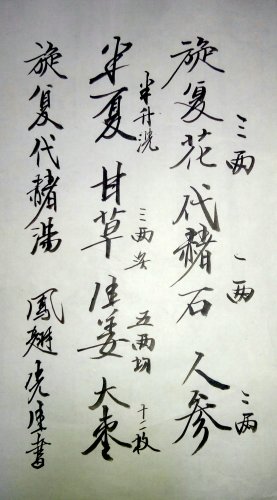 旋复花 三两 代赭石 一两 人参 二两
半夏 半升洗 甘草 三两炙 生姜 五两切 大枣 十二枚
旋复代赭湯 鳳 先生書